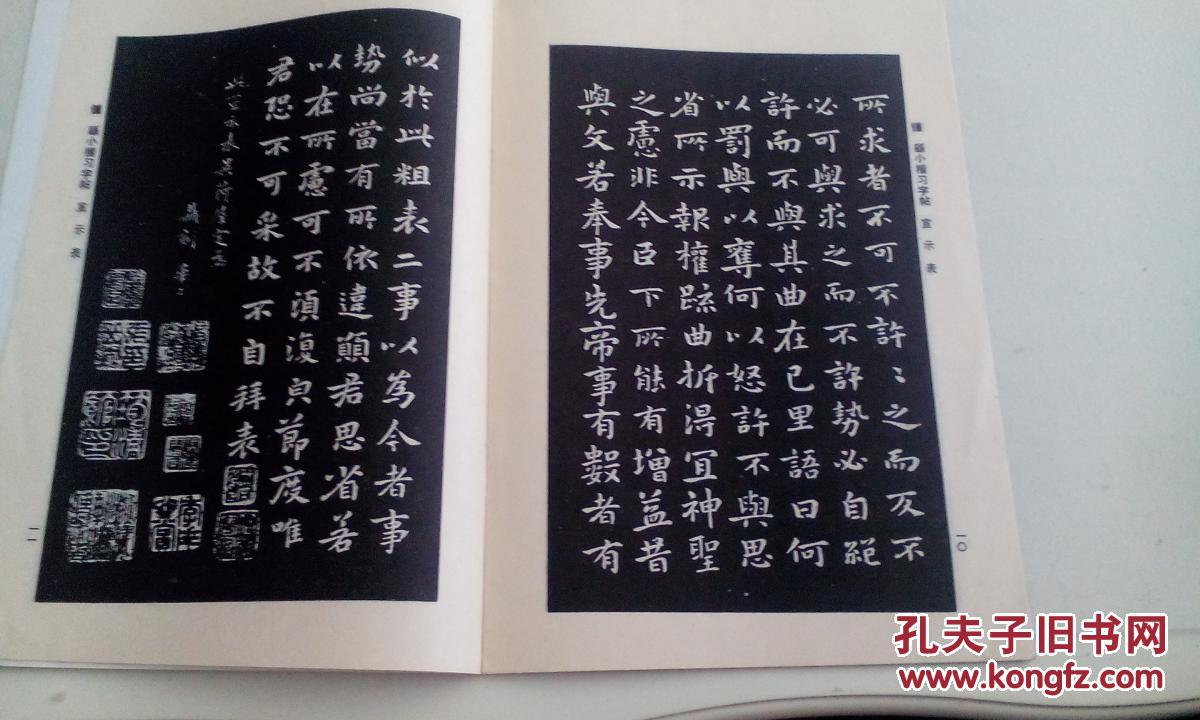 鍾繇小楷习字帖 宣示表
所求者不可不許〻之而反不
必可與求之而不許勢必自絕
許而不與其曲在己里語曰何
以罰與以奪何以怒許不與思
省所示報權疏曲折得宜神聖
之慮非今臣下所能有增益昔
與文若奉事先帝事有數者有
一〇
似於此粗表二事以為今者事
勢尚當有所依違願君思省若
以在所慮可不須復白節度唯
君恐不可采故不自拜表
鍾繇小楷习字帖 宣示表
一一
孔夫子旧书网
www.kongfz.com